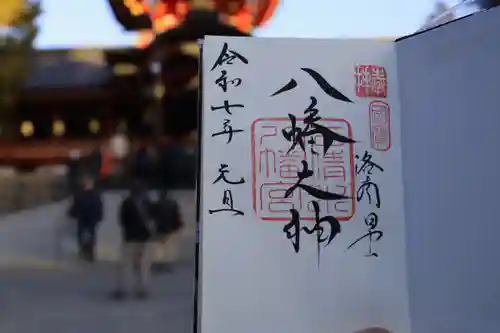 奉拝
洛南男山
八幡大神
石清水
八幡宮
令和七年 元旦